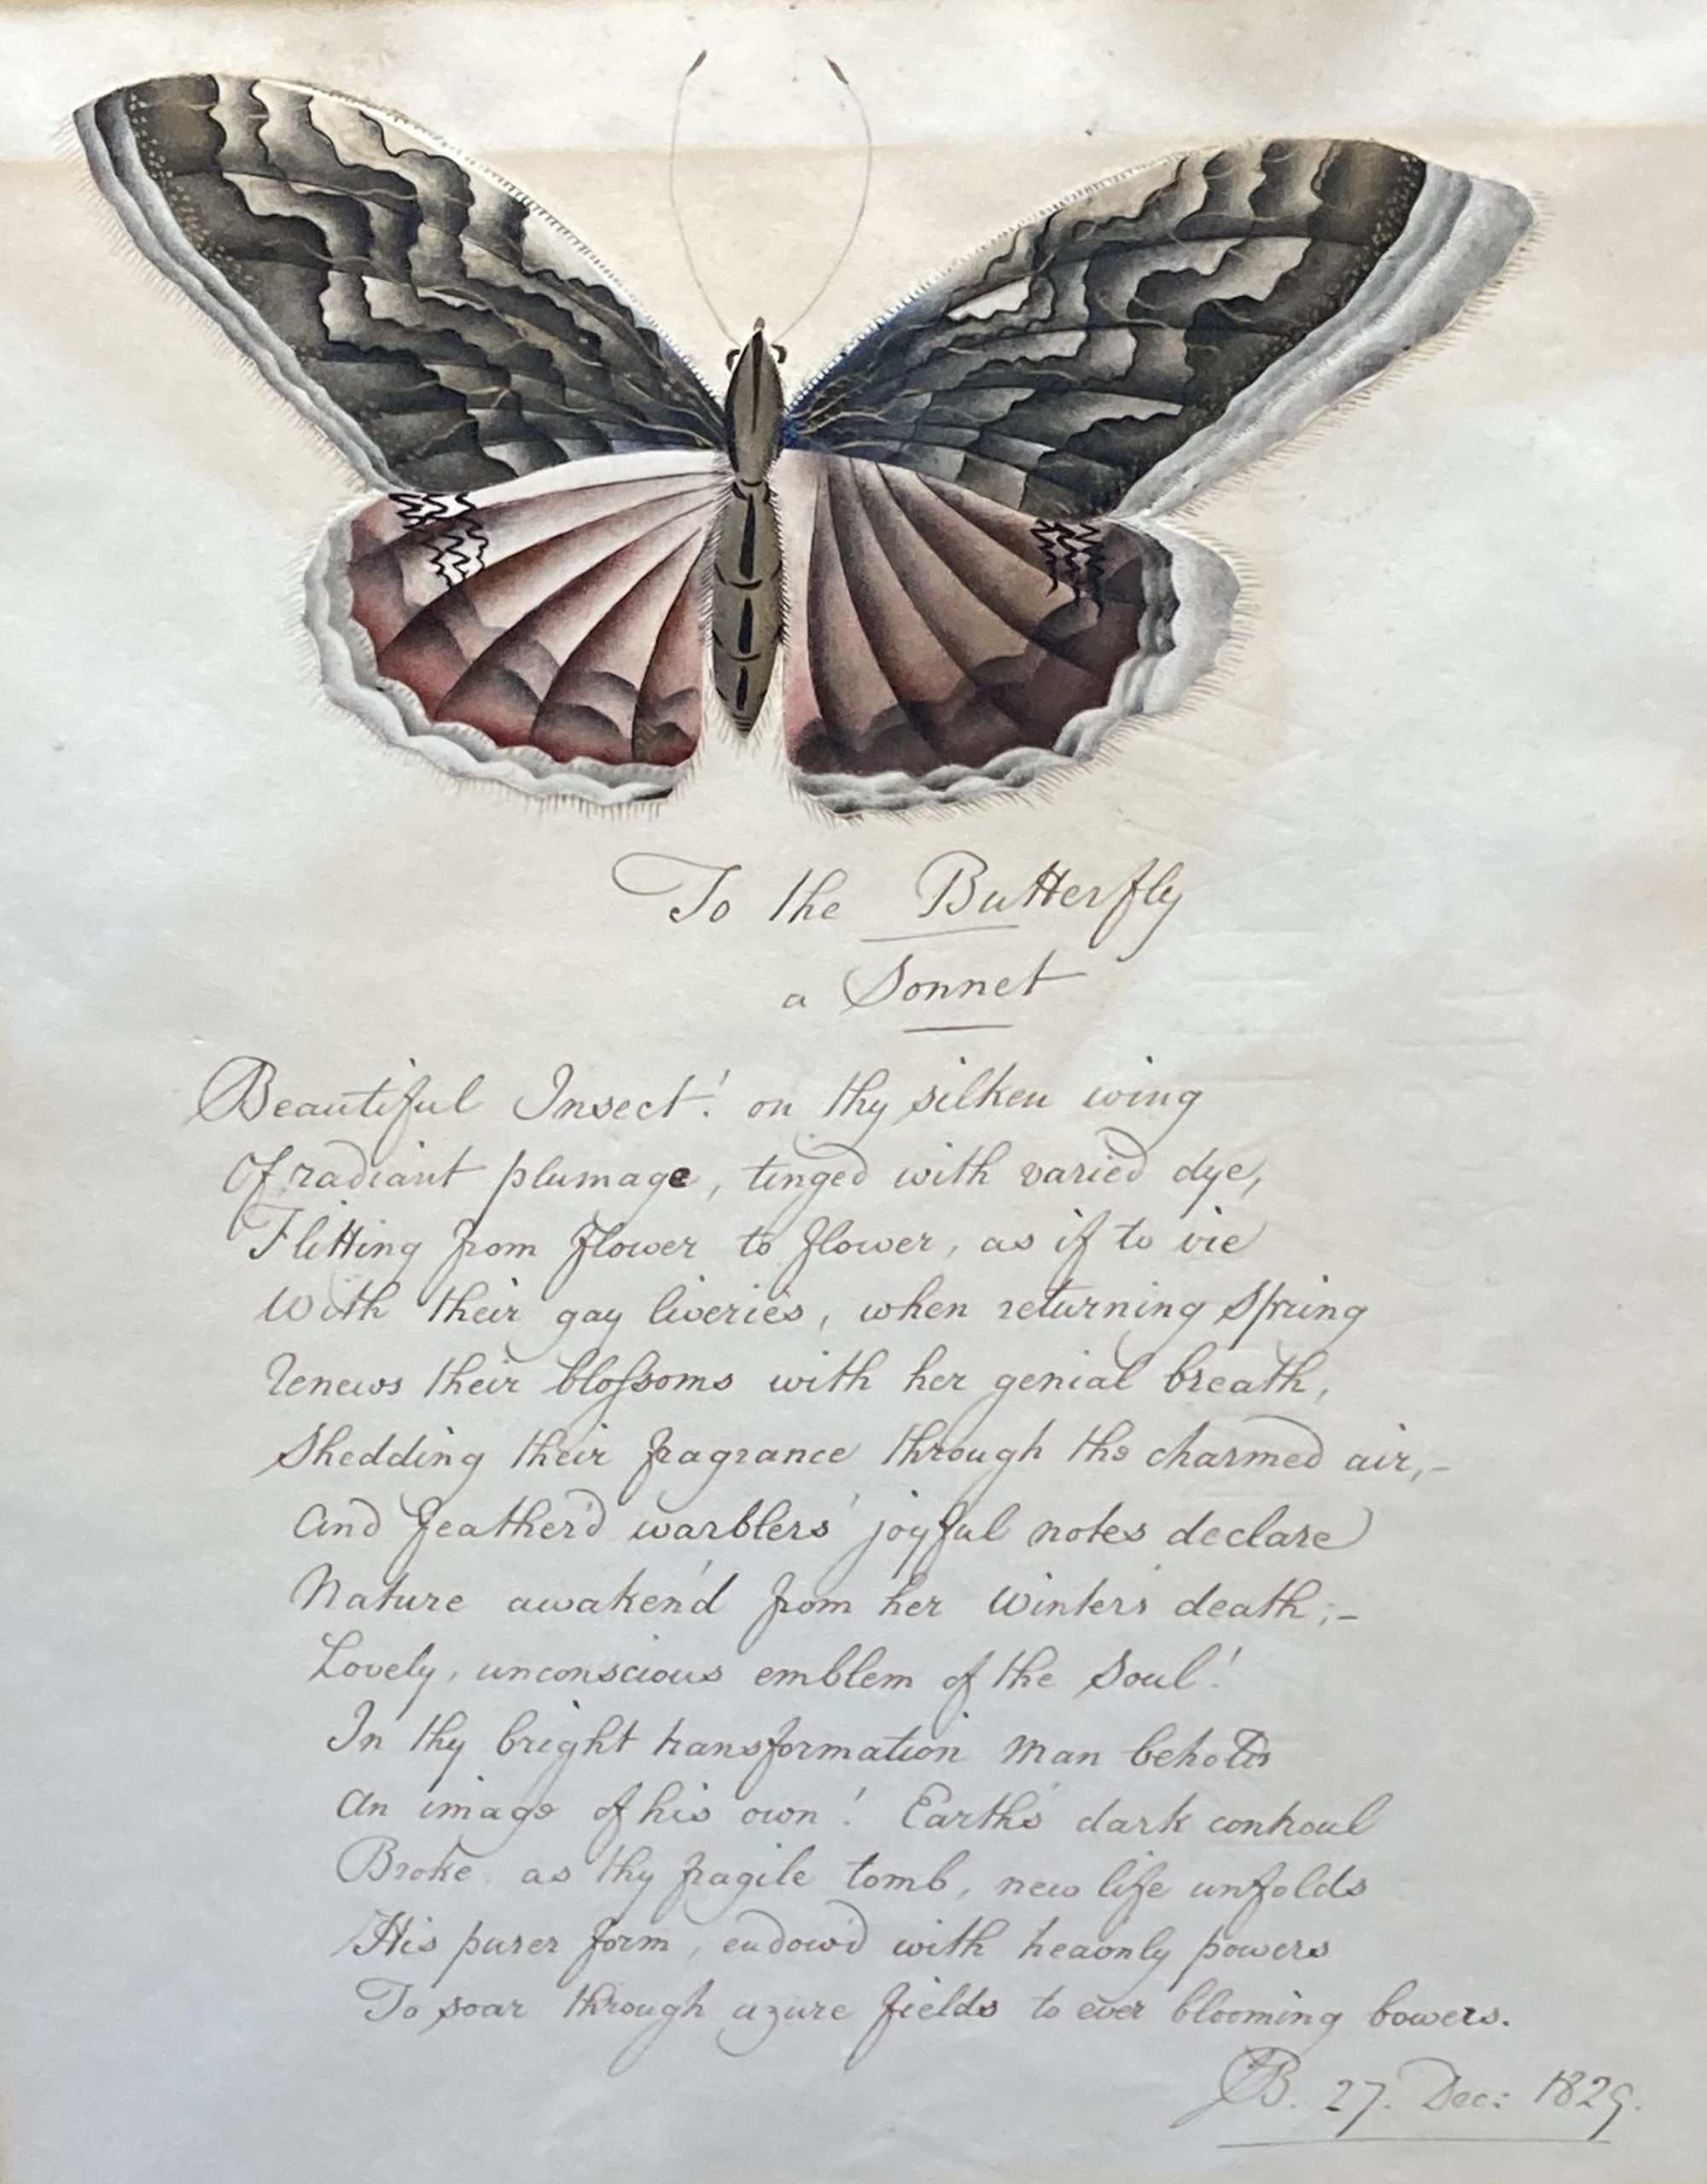 To the Butterfly
a Sonnet
Beautiful Insect! on thy silken wing
Of radiant plumage, tinged with varied dye,
Flitting from flower to flower, as if to vie
With their gay liveries, when returning Spring
Renews their bloſsoms with her genial breath,
Shedding their fragrance through the charmed air,-
And feather'd warblers' joyful notes declare
Nature awaken'd from her Winter's death;-
Lovely, unconscious emblem of the Soul!
In thy bright transformation Man beholds
An image of his own! Earth's dark controul
Broke as thy fragile tomb, new life unfolds
His purer form, endow'd with heav'nly powers
To soar through azure fields to ever blooming bowers.
27. Dec: 1829.